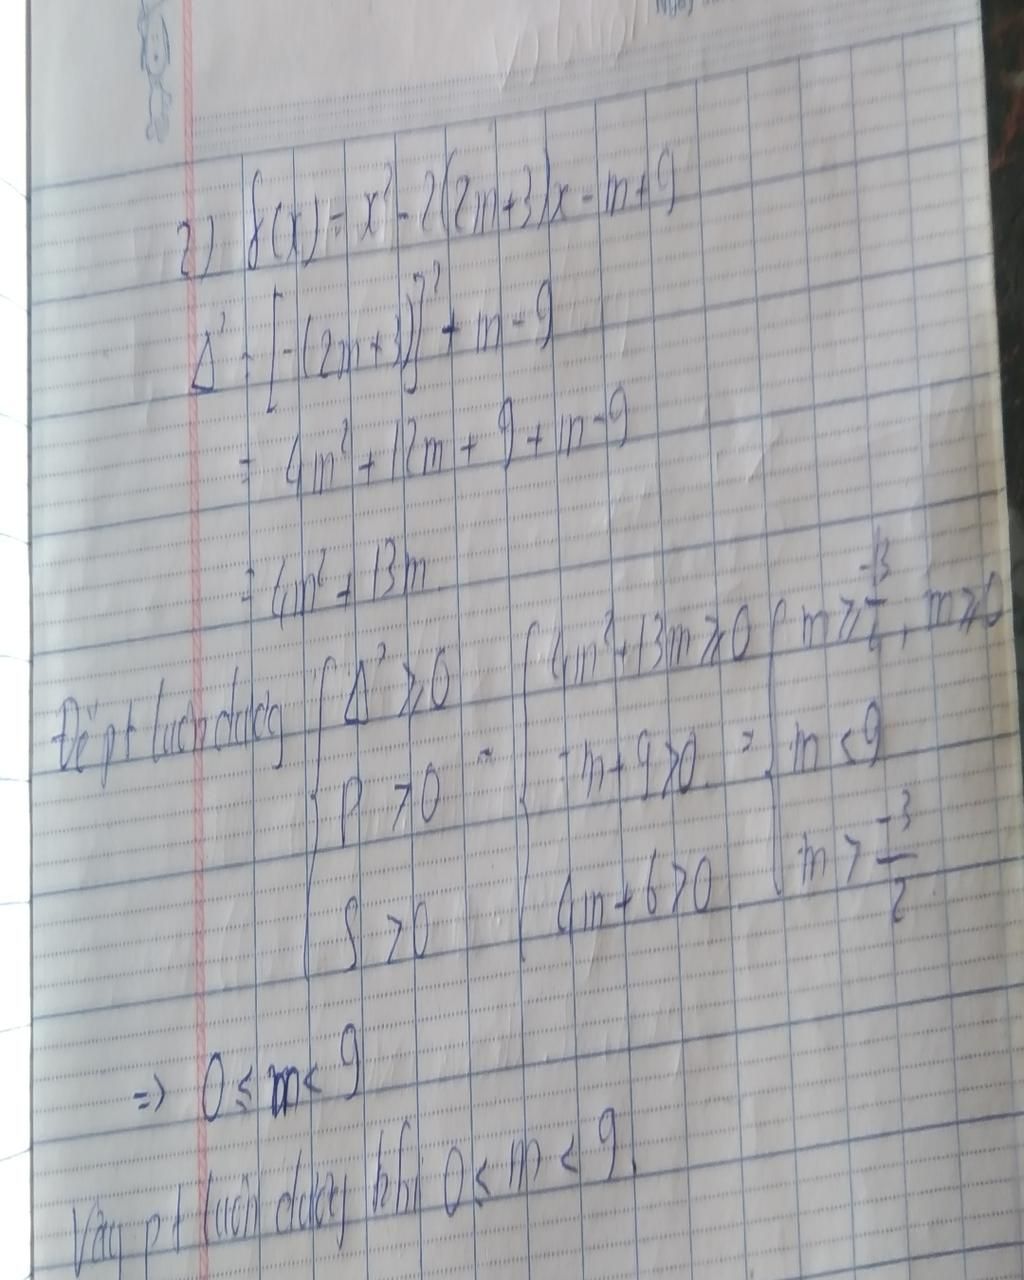 2) f(x) = x² - 2(2m+3)x - m + 9
Δ' = [-(2m+3)]² + m - 9
= 4m² + 12m + 9 + m - 9
= 4m² + 13m
Để pt luôn dương { Δ' ≥ 0 = { 4m² + 13m ≥ 0 = { m ≥ -13/4, m ≥ 0
P > 0 -m + 9 > 0 m < 9
S > 0 4m + 6 > 0 m > -3/2
=> 0 ≤ m < 9
Vậy pt luôn dương khi 0 ≤ m < 9.